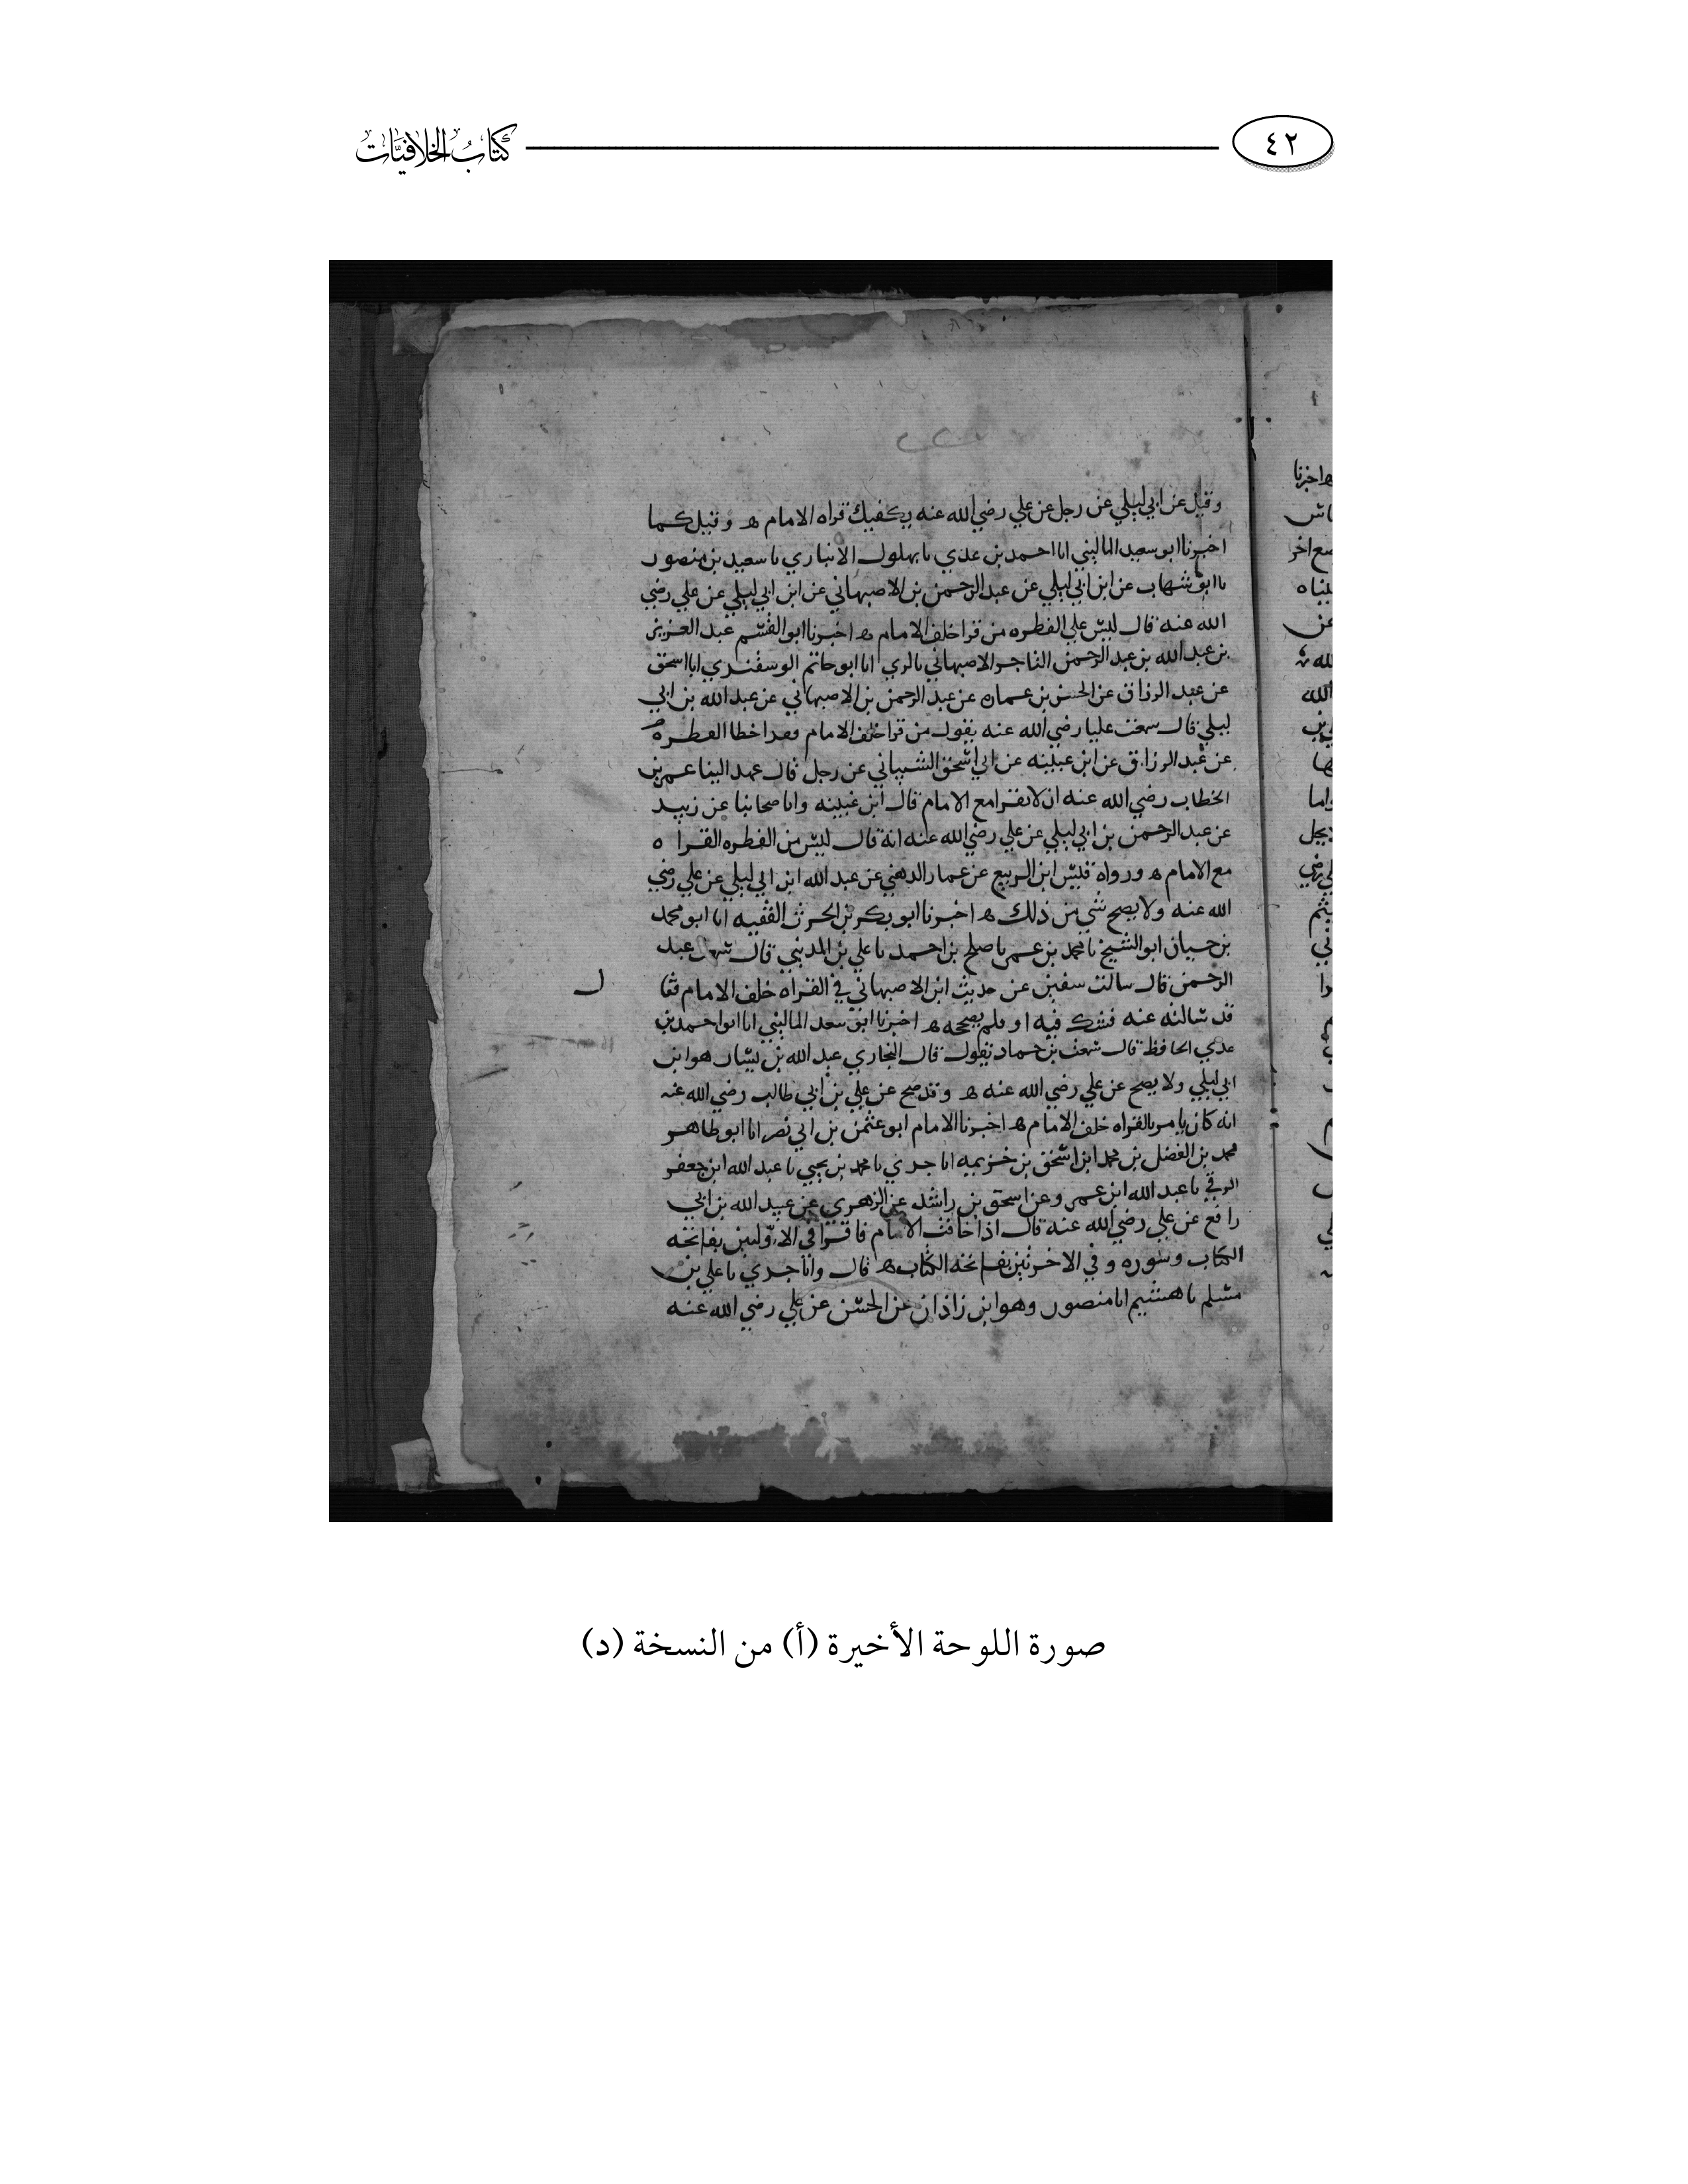 ٤٢
كتاب الخلافيات
وقيل عن ابي ليلي عن رجل عن علي رضي الله عنه يكفيك قراه الامام ه وقيل كما
اخبرنا ابو سعيد الماليني انا احمد بن عدي نا بهلول الانباري نا سعيد بن منصور
نا ابو شهاب عن ابن ابي ليلي عن عبد الرحمن بن الاصبهاني عن ابن ابي ليلي عن علي رضي
الله عنه قال ليس علي الفطره من قرا خلف الامام ه اخبرنا ابو القسم عبد العزيز
بن عبد الله بن عبد الرحمن التاجر الاصبهاني بالري انا ابو حاتم الوسقندي انا اسحق
عن عبد الرزاق عن الحسن بن عماره عن عبد الرحمن بن الاصبهاني عن عبد الله بن ابي
ليلي قال سمعت عليا رضي الله عنه يقول من قرا خلف الامام فقد اخطا الفطره
عن عبد الرزاق عن ابن عيينه عن ابي اسحق الشيباني عن رجل قال عهد الينا عمر بن
الخطاب رضي الله عنه ان لا نقرا مع الامام قال ابن عيينه وانا صحابنا عن زبيد
عن عبد الرحمن بن ابي ليلي عن علي رضي الله عنه انه قال ليس من الفطره القراه
مع الامام ه ورواه قيس ابن الربيع عن عمار الدهني عن عبد الله ابن ابي ليلي عن علي رضي
الله عنه ولا يصح شي من ذلك ه اخبرنا ابو بكر بن الحرث الفقيه انا ابو محمد
بن حيان ابو الشيخ نا محمد بن عمر نا صلح بن احمد نا علي بن المديني قال عبد
الرحمن قال سالت سفين عن حديث ابن الاصبهاني في القراه خلف الامام فقا
ل
قد سالته عنه فشك فيه او فلم يصححه ه اخبرنا ابو سعد الماليني انا ابو احمد بن
عدي الحافظ قال سمعت بن حماد يقول قال البخاري عبد الله بن يسار هو ابن
ابي ليلي ولا يصح عن علي رضي الله عنه ه وقد صح عن علي بن ابي طالب رضي الله عنه
انه كان يامر بالقراه خلف الامام ه اخبرنا الامام ابو عثمن بن ابي نصر انا ابو طاهر
محمد بن الفضل بن محمد ابن اسحق بن خزيمه انا جدي نا محمد بن يحيي نا عبد الله ابن جعفر
الرقي نا عبد الله ابن عمر وعن اسحق بن راشد عن الزهري عن عبيد الله بن ابي
رافع عن علي رضي الله عنه قال اذا خافت الامام فاقرا في الاوليين بفاتحه
الكتاب وسوره وفي الاخرتين بفاتحه الكتاب ه قال وانا جدي نا علي بن
مسلم نا هشيم انا منصور وهو ابن زاذان عن الحسن عن علي رضي الله عنه
صورة اللوحة الأخيرة (أ) من النسخة (د)